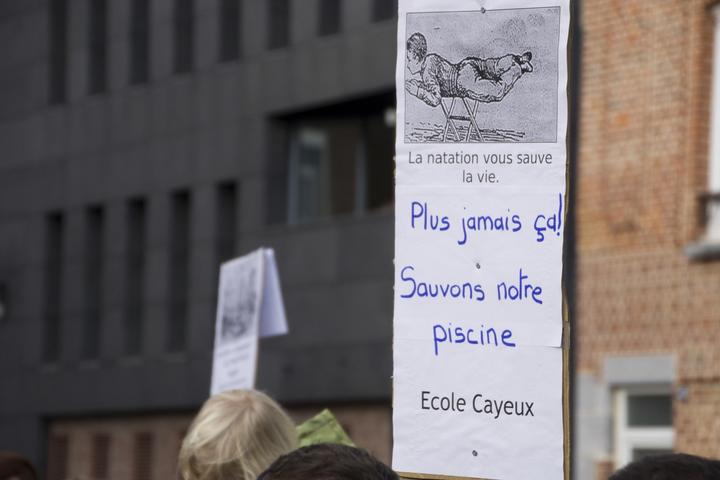 La natation vous sauve
la vie.
Plus jamais ça!
Sauvons notre
piscine
Ecole Cayeux